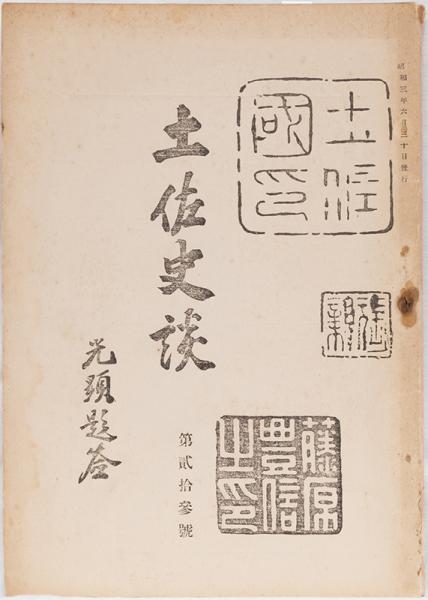 昭和三年六月三十日發行
土佐
國印
藤原
豊信
之印
第貳拾參號
土佐史談
光顕題簽